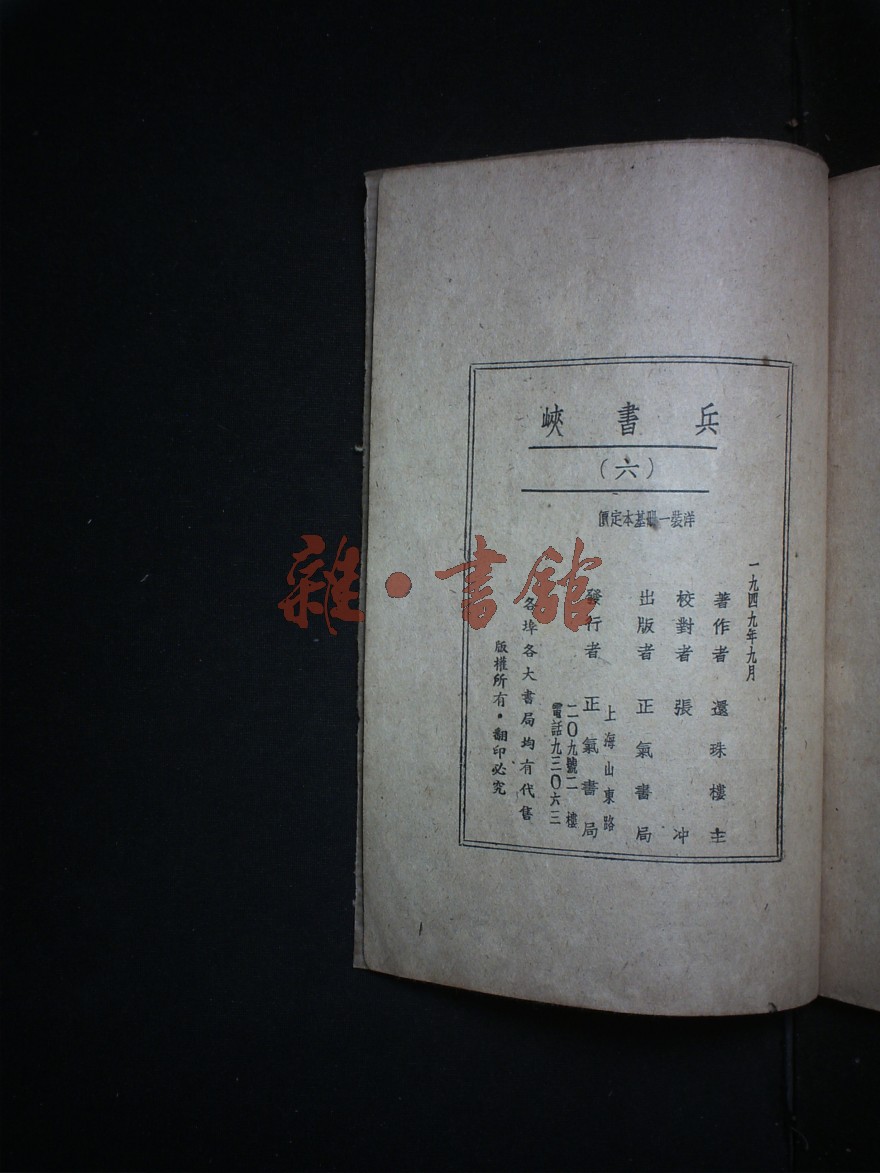 兵書峽
(六)
洋裝一冊基本定價
一九四九年九月
著作者 還珠樓主
校對者 張冲
出版者 正氣書局
發行者 正氣書局
上海山東路
二〇九號二樓
電話九三〇六三
各埠各大書局均有代售
版權所有•翻印必究
雜•書館